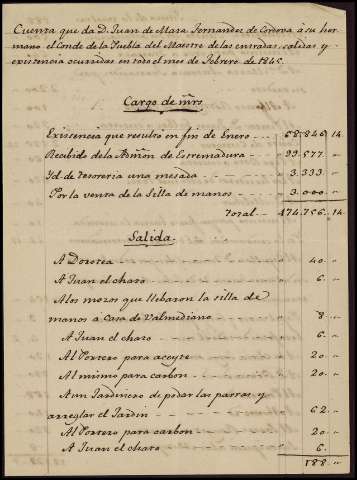 Cuenta que da D. Juan de Mara Fernandez de Cordova à su her-
mano el Conde de la Puebla del Maestre de las entradas, salidas y
existencia ocurridas en todo el mes de Febrero de 1845.
Cargo de mrs
Existencia que resultó en fin de Enero - - 68.846 14
Recibido de la Admon de Estremadura - - 99.577 "
Id. de tesoreria una mesada - - - - 3.333 "
Por la venta de la silla de manos - - 3.000 "
Total - - 174.756 14
Salida.
A Dorotea - - - - 40 "
A Juan el charo - - - - 6 "
A los mozos que llebaron la silla de
manos a casa de Valmediano - - - 8 "
A Juan el charo - - - - 6 "
Al Portero para aceyte - - - - 20 "
Al mismo para carbon - - - - 20 "
A un Jardinero de podar las parras y
arreglar el Jardin - - - - 62 "
Al Portero para carbon - - - - 20 "
A Juan el charo - - - - 6 "
188 "